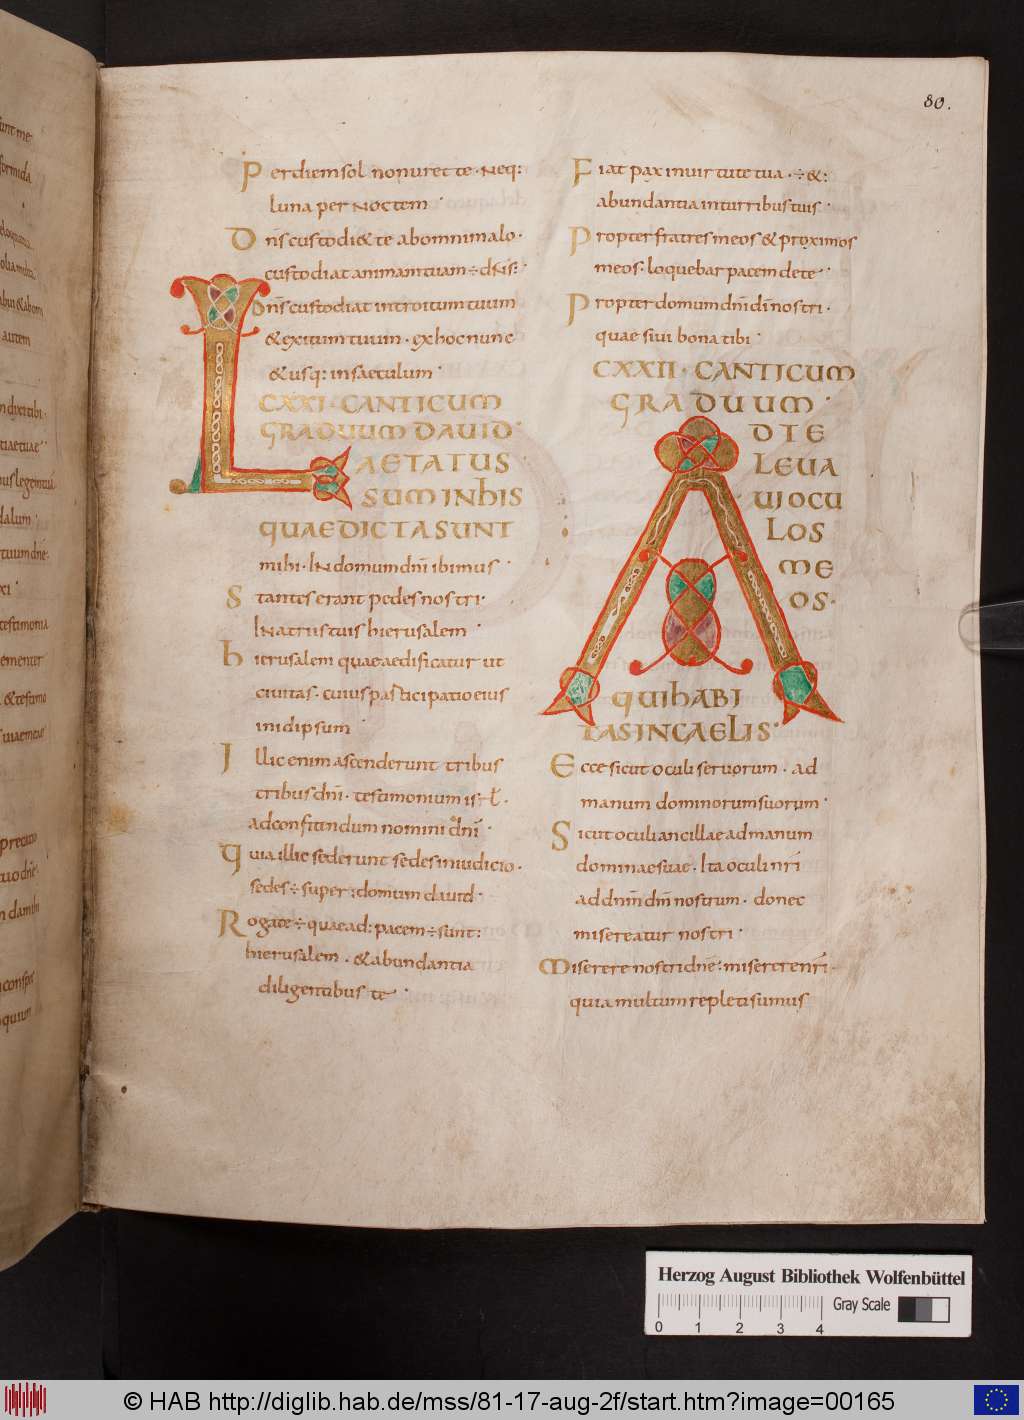 80.
Per diem sol non uret te · Neq:
luna per Noctem ·
Dn̄s custodi& te abomnimalo ·
custodiat animam tuam ÷ dn̄s :
Dn̄s custodiat introitum tuum
& exitum tuum · ex hoc nunc
& usq: in saeculum ·
CXXI · CANTICUM
GRADUUM DAUID
LAETATUS
SUM IN HIS
QUAE DICTA SUNT
mihi · IN domum dn̄i ibimus ·
Stantes erant pedes nostri ·
IN atriis tuis hierusalem ·
hierusalem quae aedificatur ut
ciuitas · cuius participatio eius
in idipsum ·
Illic enim ascenderunt tribus
tribus dn̄i · testimonium isrl̄ ·
ad confitendum nomini dn̄i ·
quia illic sederunt sedes in iudicio ·
sedes ÷ super : domum dauid ·
Rogate ÷ quae ad : pacem ÷ sunt :
hierusalem · & abundantia
diligentibus te ·
Fiat pax in uirtute tua · ÷ & :
abundantia in turribus tuis ·
Propter fratres meos & proximos
meos · loquebar pacem de te ·
Propter domum dn̄i dī nostri ·
quae siui bona tibi ·
CXXII · CANTICUM
GRADUUM ·
AD TE
LEUA
UI OCU
LOS
ME
OS ·
QUI HABI
TAS IN CAELIS ·
Ecce sicut oculi seruorum · ad
manum dominorum suorum ·
Sicut oculi ancillae ad manum
dominae suae · Ita oculi nr̄i
ad dn̄m dm̄ nostrum · donec
misereatur nostri ·
Miserere nostri dn̄e · miserere nr̄i ·
quia multum repleti sumus
Herzog August Bibliothek Wolfenbüttel
Gray Scale
0 1 2 3 4
© HAB http://diglib.hab.de/mss/81-17-aug-2f/start.htm?image=00165